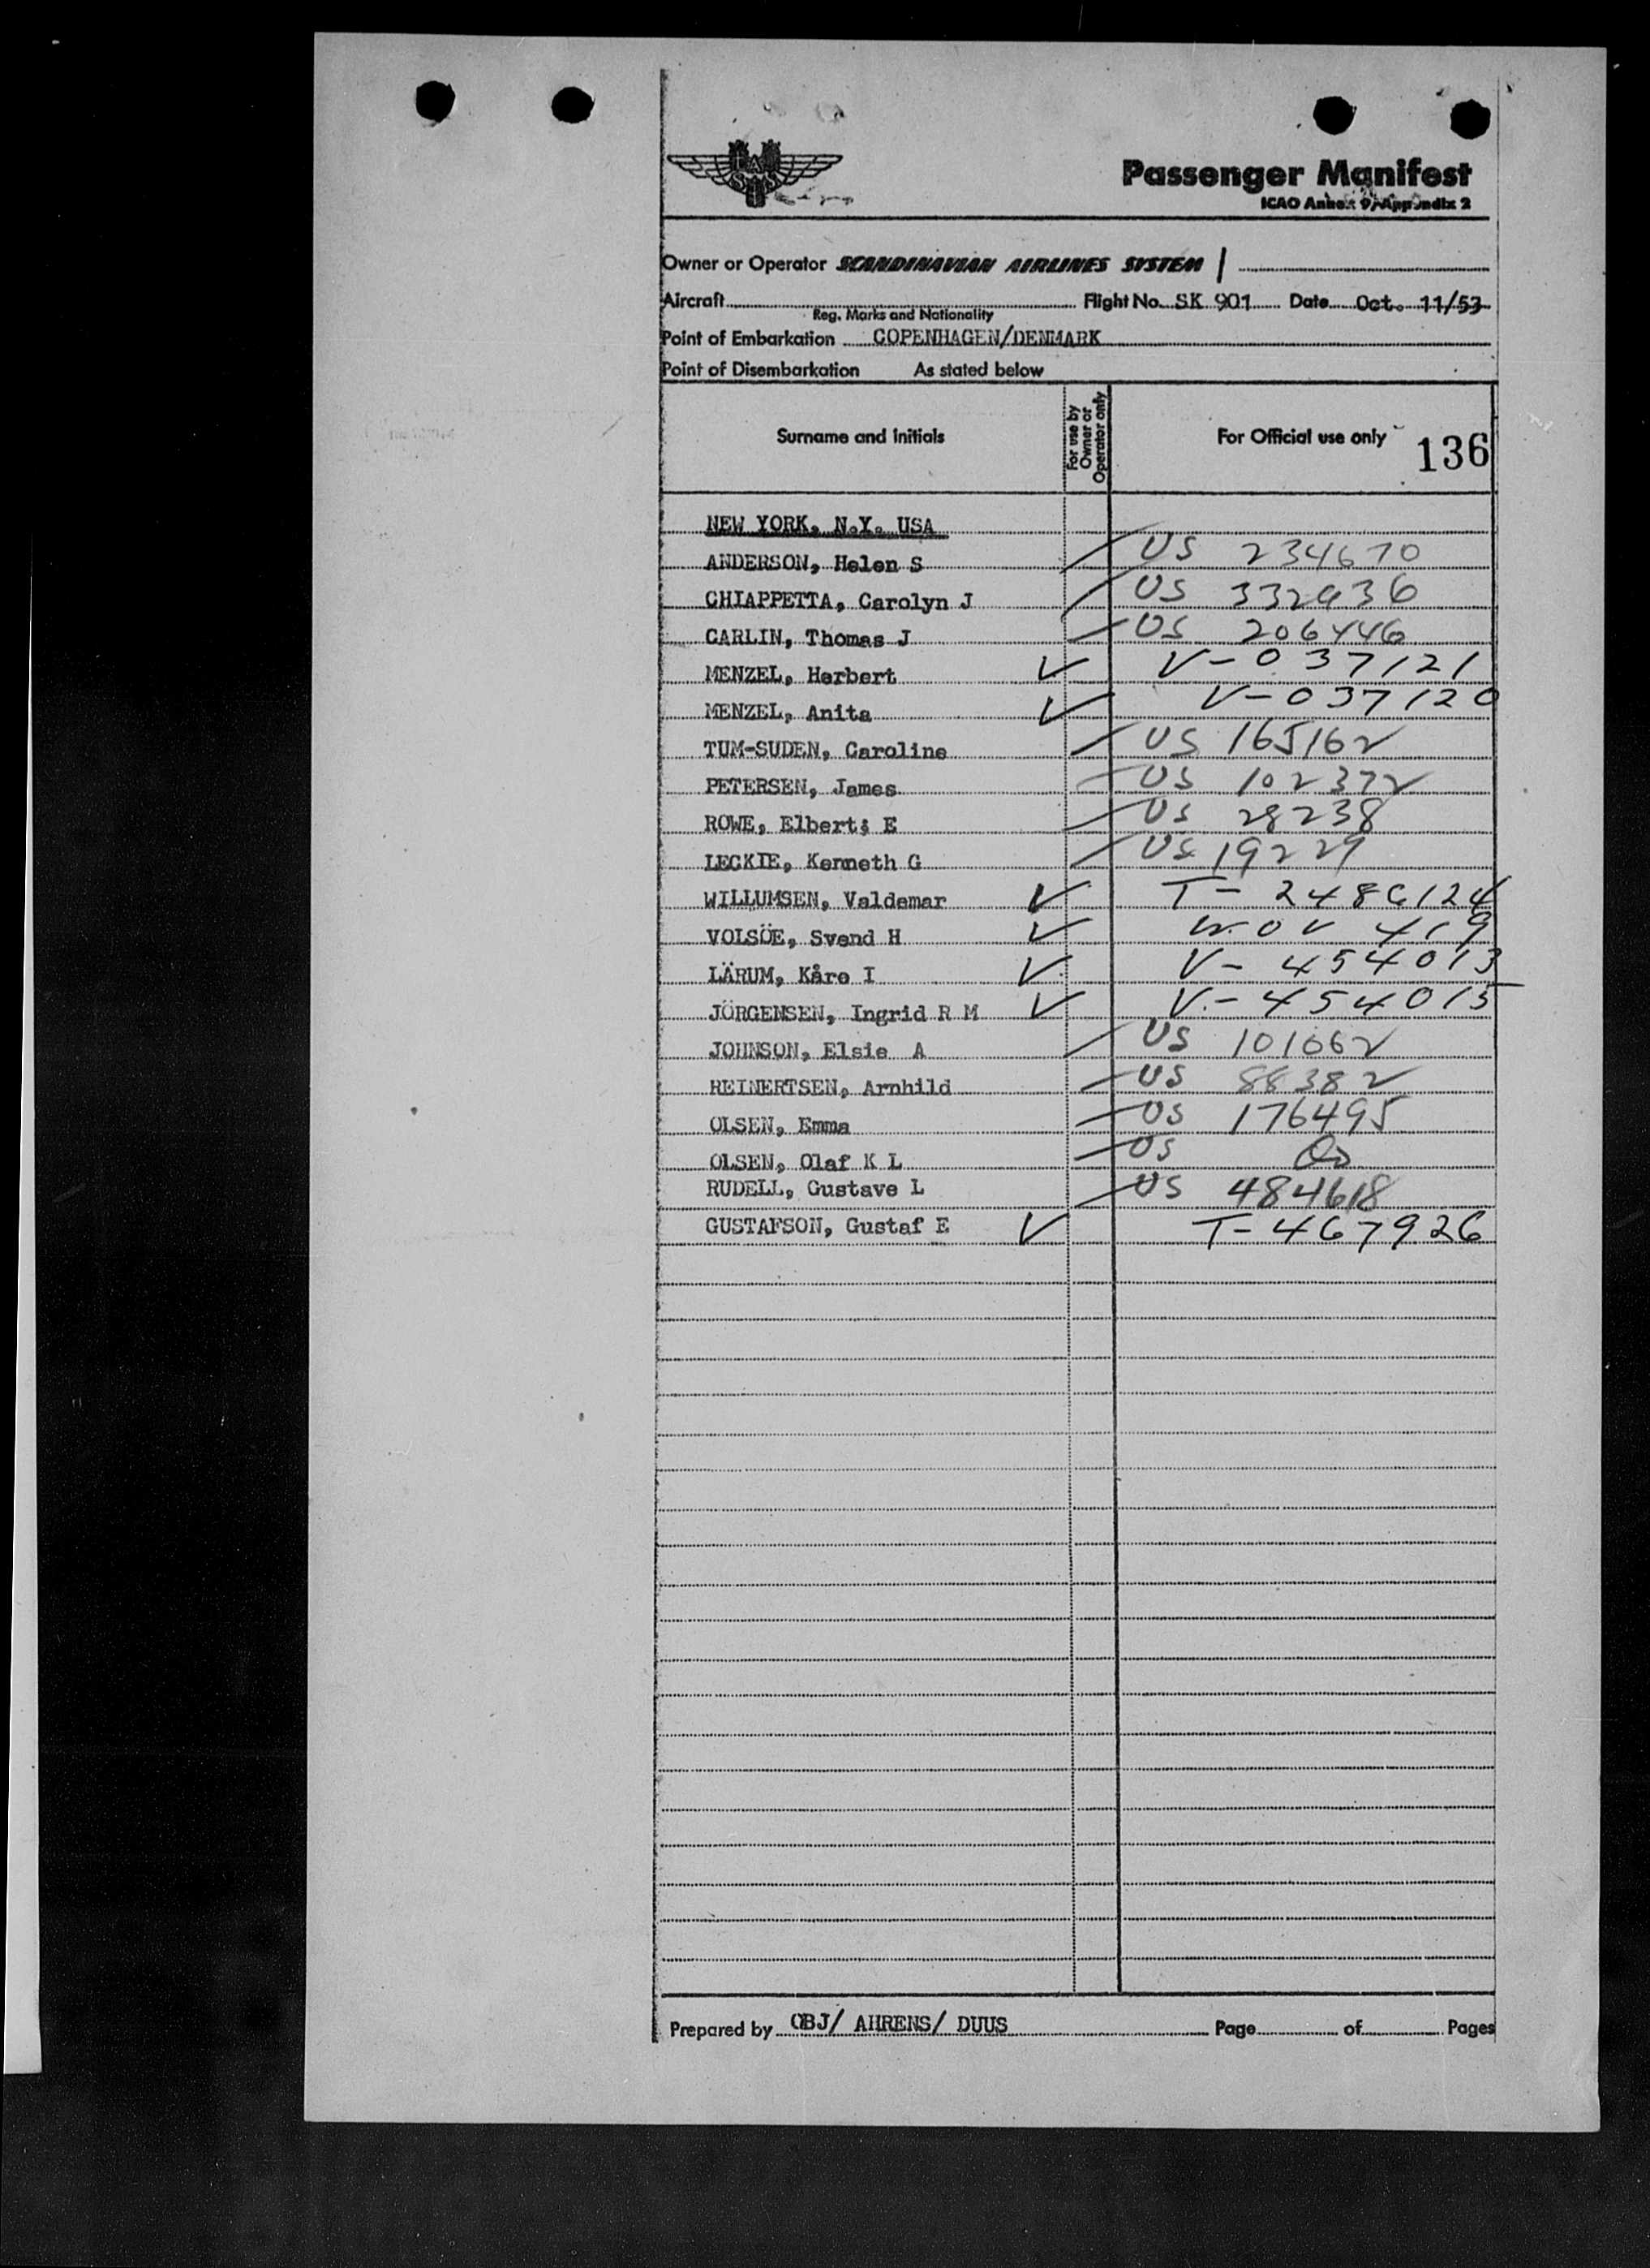 SAS
Passenger Manifest
ICAO Annex 9, Appendix 2
Owner or Operator SCANDINAVIAN AIRLINES SYSTEM
Aircraft Flight No. SK 901 Date Oct. 11/53
Reg. Marks and Nationality
Point of Embarkation COPENHAGEN/DENMARK
Point of Disembarkation As stated below
Surname and Initials For use by Owner or Operator only For Official use only 136
NEW YORK, N.Y. USA
ANDERSON, Helen S US 234670
CHIAPPETTA, Carolyn J US 332936
CARLIN, Thomas J US 206446
MENZEL, Herbert V V-037121
MENZEL, Anita V V-037120
TUM-SUDEN, Caroline US 165162
PETERSEN, James US 102372
ROWE, Elbert; E US 28238
LECKIE, Kenneth G US 19229
WILLUMSEN, Valdemar V T-2486124
VOLSÖE, Svend H V 419
LÄRUM, Kåre I V V-454013
JÖRGENSEN, Ingrid R M V V-454015
JOHNSON, Elsie A US 101062
REINERTSEN, Arnhild US 88382
OLSEN, Emma US 176495
OLSEN, Olaf K L US
RUDELL, Gustave L US 484618
GUSTAFSON, Gustaf E V T-467926
Prepared by OBJ/ AHRENS/ DUUS Page of Pages